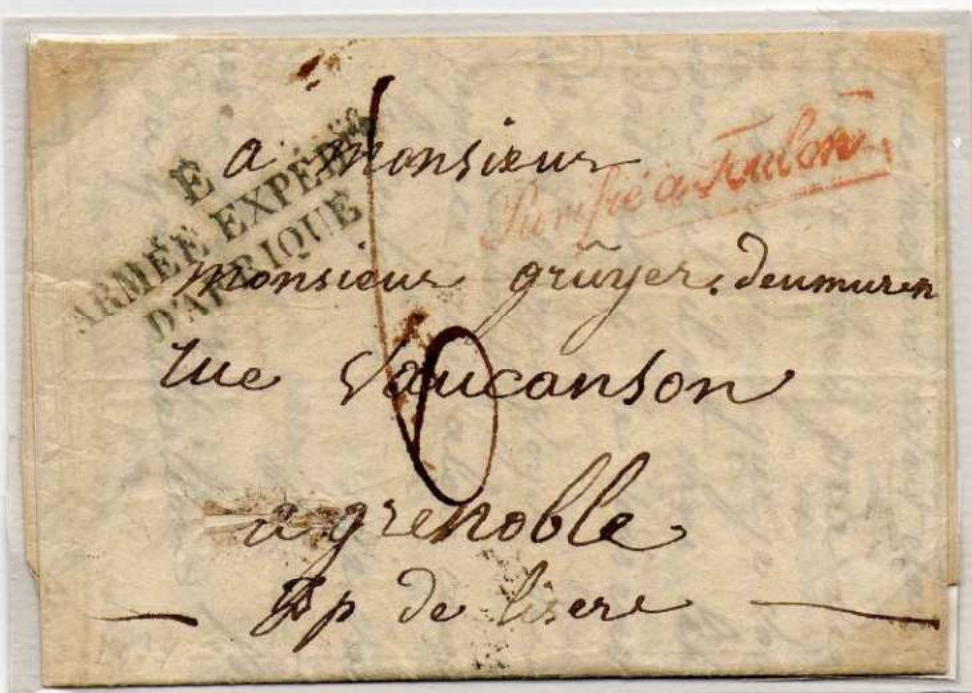 E
ARMÉE EXPÉD.
D'AFRIQUE
Purifié à Toulon
a monsieur
monsieur grũyer. deumuren
rue Vaucanson
6
a grenoble
Dp de lisere